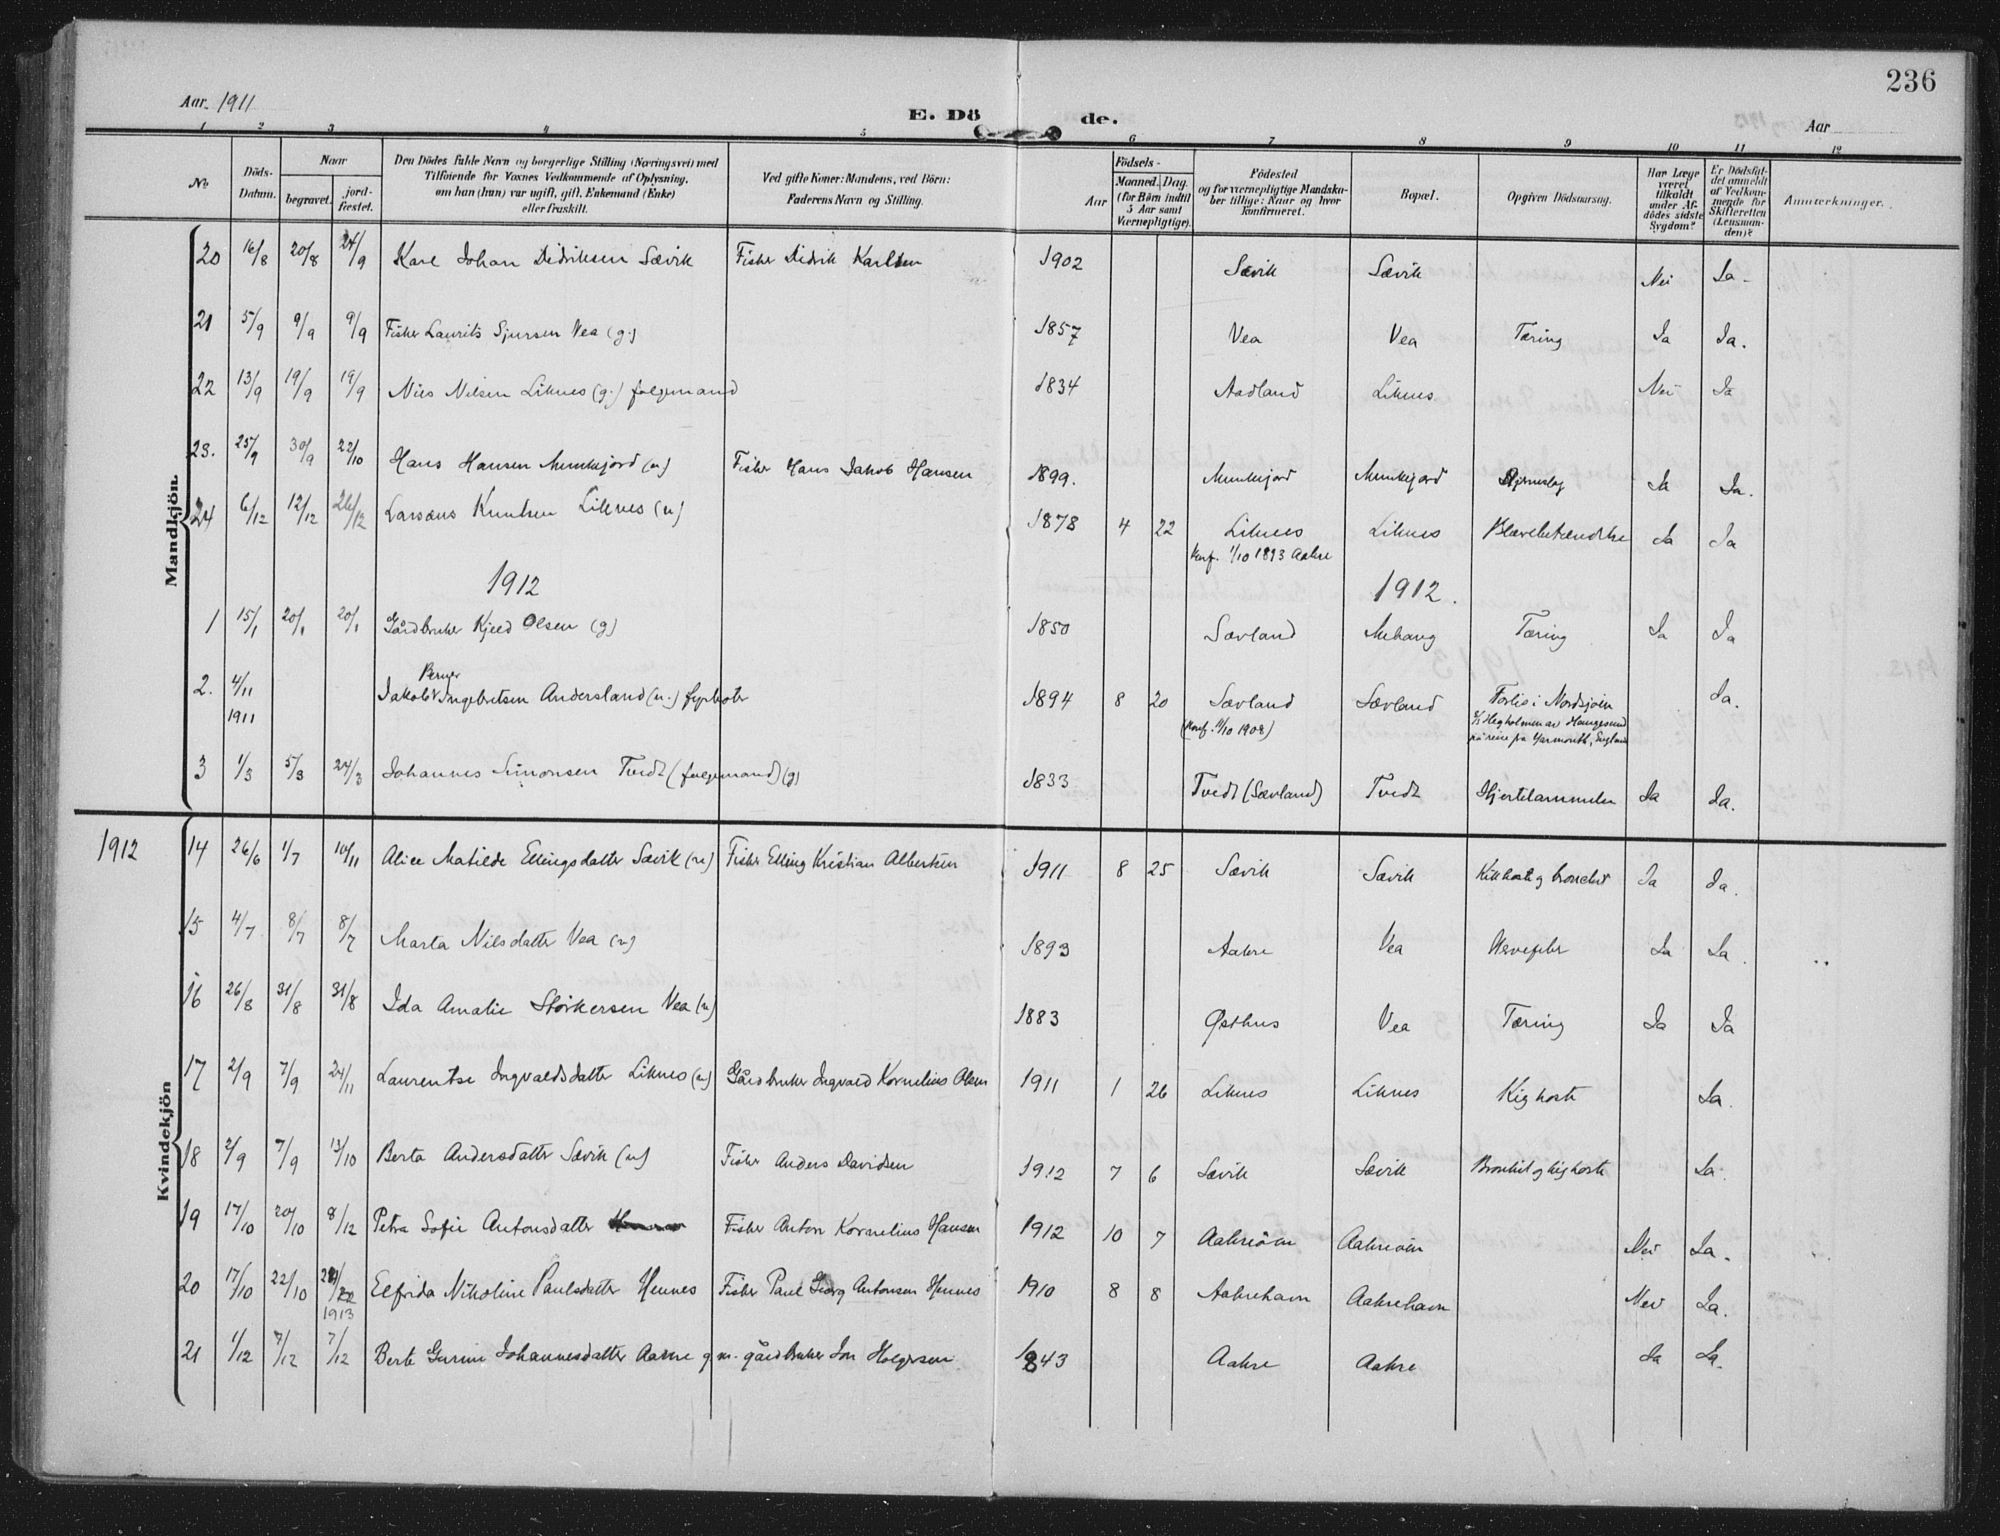 236
Aar. 1911
E. Dö de.
Aar
1 2 3 4 5 6 7 8 9 10 11 12
No
Döds-Datum.
Naar
begravet.
jord-fæstet.
Den Dödes fulde Navn og borgerlige Stilling (Næringsvei) med
Tilföiende for Voxnes Vedkommende af Oplysning,
om han (hun) var ugift, gift, Enkemand (Enke)
eller fraskilt.
Ved gifte Koner: Mandens, ved Börn:
Faderens Navn og Stilling.
Födsels-
Aar
Maaned. Dag.
(for Börn indtil
5 Aar samt
Værnepligtige).
Födested
og for værnepligtige Mandska-
ber tillige: Naar og hvor
konfirmeret.
Bopæl.
Opgiven Dödsaarsag.
Har Læge
været
tilkaldt
under Af-
dödes sidste
Sygdom?
Er Dödsfal-
det anmeldt
af Vedkom-
mende for
Skifteretten
(Lensman-
den)?
Anmærkninger.
Mandkjön.
20 16/8 20/8 24/9 Karl Johan Didriksen Sævik Fisker Didrik Karlsen 1902 Sævik Sævik Nei Ja
21 5/9 9/9 9/9 Fisker Laurits Sjursen Vea (g.) 1857 Vea Vea Tæring Ja Ja.
22 13/9 19/9 19/9 Nils Nilsen Liknes (g.) folgemand 1834 Aadland Liknes Nei Ja
23. 25/9 30/9 22/10 Hans Hansen Munkejord (u) Fisker Hans Jakob Hansen 1899. Munkejord Munkejord Ja Ja.
24 6/12 12/12 26/12 Knutsen Liknes (u) 1878 4 22 Liknes Liknes Ja Ja
Konf. 1/10 1893 Aakre
1912 1912.
1 15/1 20/1 20/1 Gårdbruker Kjeld Olsen (g) 1850 Sævland Tæring Ja Ja
2. 4/11 1911 Jakob Berner Ingebretsen Andersland (u.) fyrbøter 1894 8 20 Sævland Sævland Forlis i Nordsjøen Ja.
(Konf. 11/10 1908) s/s Hegholmen av Haugesund
på reise fra Yarmouth, England
3 1/3 5/3 24/3 Johannes Simonsen Tvedt (folgemand) (g) 1833 Tvedt (Sævland) Tvedt Hjertelammelse Ja Ja.
Kvindekjön
1912 14 26/6 1/7 10/11 Alice Matilde Ellingsdatter Sævik (u) Fisker Elling Kristian Albertsen 1911 8 25 Sævik Sævik Kikhoste og bronchit Ja Ja.
15 4/7 8/7 8/7 Marta Nilsdatter Vea (u) 1893 Aakre Vea Nervefeber Ja Ja
16 26/8 31/8 31/8 Ida Amalie Størkersen Vea (u) 1883 Østhus Vea Tæring Ja Ja
17 2/9 7/9 24/11 Laurentse Ingvaldsdatter Liknes (u) Gårdbruker Ingvald Kornelius Olsen 1911 1 26 Liknes Liknes Kighoste Ja
18 2/9 7/9 13/10 Berta Andersdatter Sævik (u) Fisker Anders Davidsen 1912 7 6 Sævik Sævik Bronkit og kighoste Ja
19 17/10 20/10 8/12 Petra Sofie Antonsdatter Fisker Anton Kornelius Hansen 1912 10 7 Aakreøen Aakreøen Nei Ja
20 17/10 22/10 1913 Elfrida Nikoline Paulsdatter Hennes Fisker Paul Georg Antonsen Hennes 1910 8 8 Aakrehavn Aakrehavn Nei Ja.
21 1/12 7/12 7/12 Berte Gurine Johannesdatter Aakre g.m. gårdbruker Jon Holgersen 1843 Aakre Aakre Ja Ja.